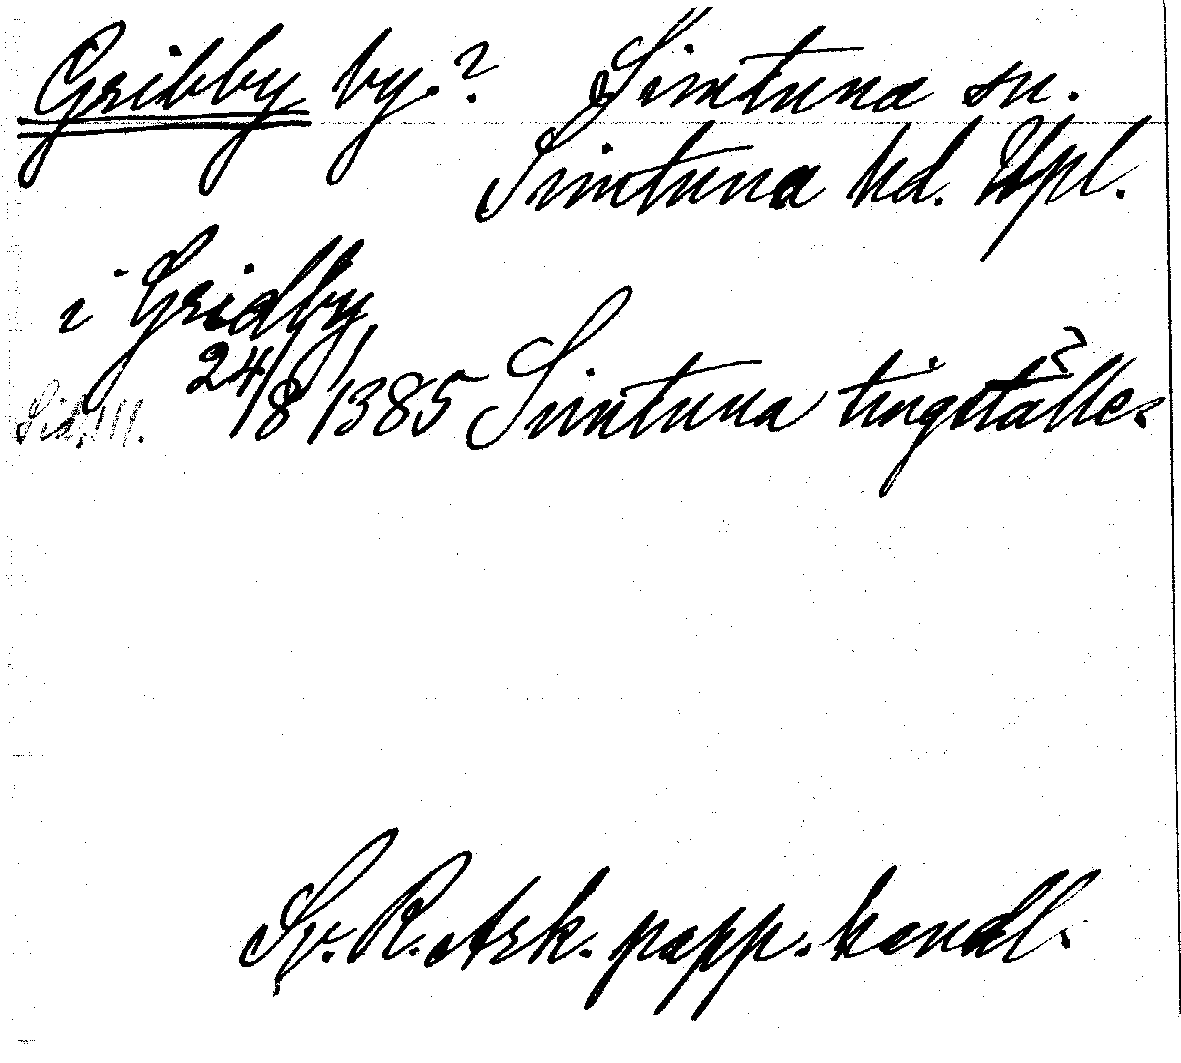 Gribby by.? Simtuna sn.
Simtuna hd. Upl.
i Gridby
24/8 1385 Simtuna tingställe
Sv. R. Ark. papp. handl.